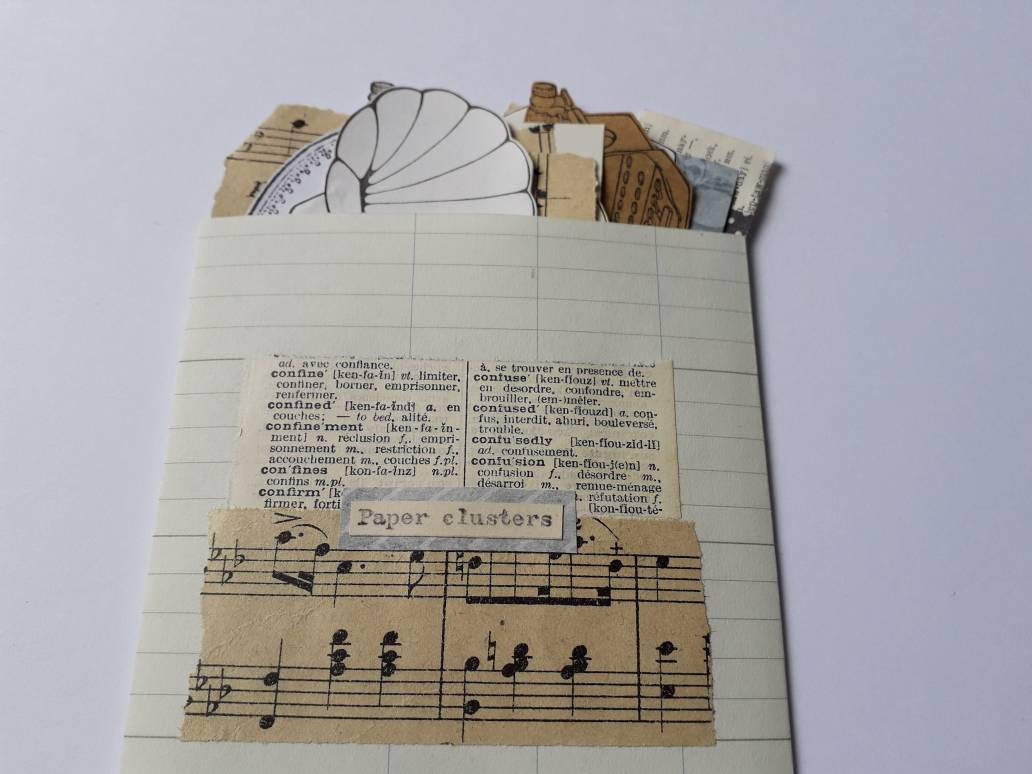 ad. avec confiance.
confine' [ken-fa-ĭn] vt. limiter,
confiner, borner, emprisonner,
renfermer.
confined' [ken-fa-ĭnd] a. en
couches; — to bed, alité.
confine'ment [ken-fa-ĭn-
ment] n. réclusion f., empri-
sonnement m., restriction f.,
accouchement m., couches f.pl.
con'fines [kon-fa-ĭnz] n.pl.
confins m.pl.
confirm' [k
firmer, forti
à, se trouver en présence de.
confuse' [ken-fiouz] vt. mettre
en désordre, confondre, em-
brouiller, (em-)mêler.
confused' [ken-fiouzd] a. con-
fus, interdit, ahuri, bouleversé,
trouble.
confu'sedly [ken-fiou-zid-lĭ]
ad. confusément.
confu'sion [ken-fiou-j(e)n] n.
confusion f., désordre m.,
désarroi m., remue-ménage
n. réfutation f.
[kon-fiou-té-
Paper clusters